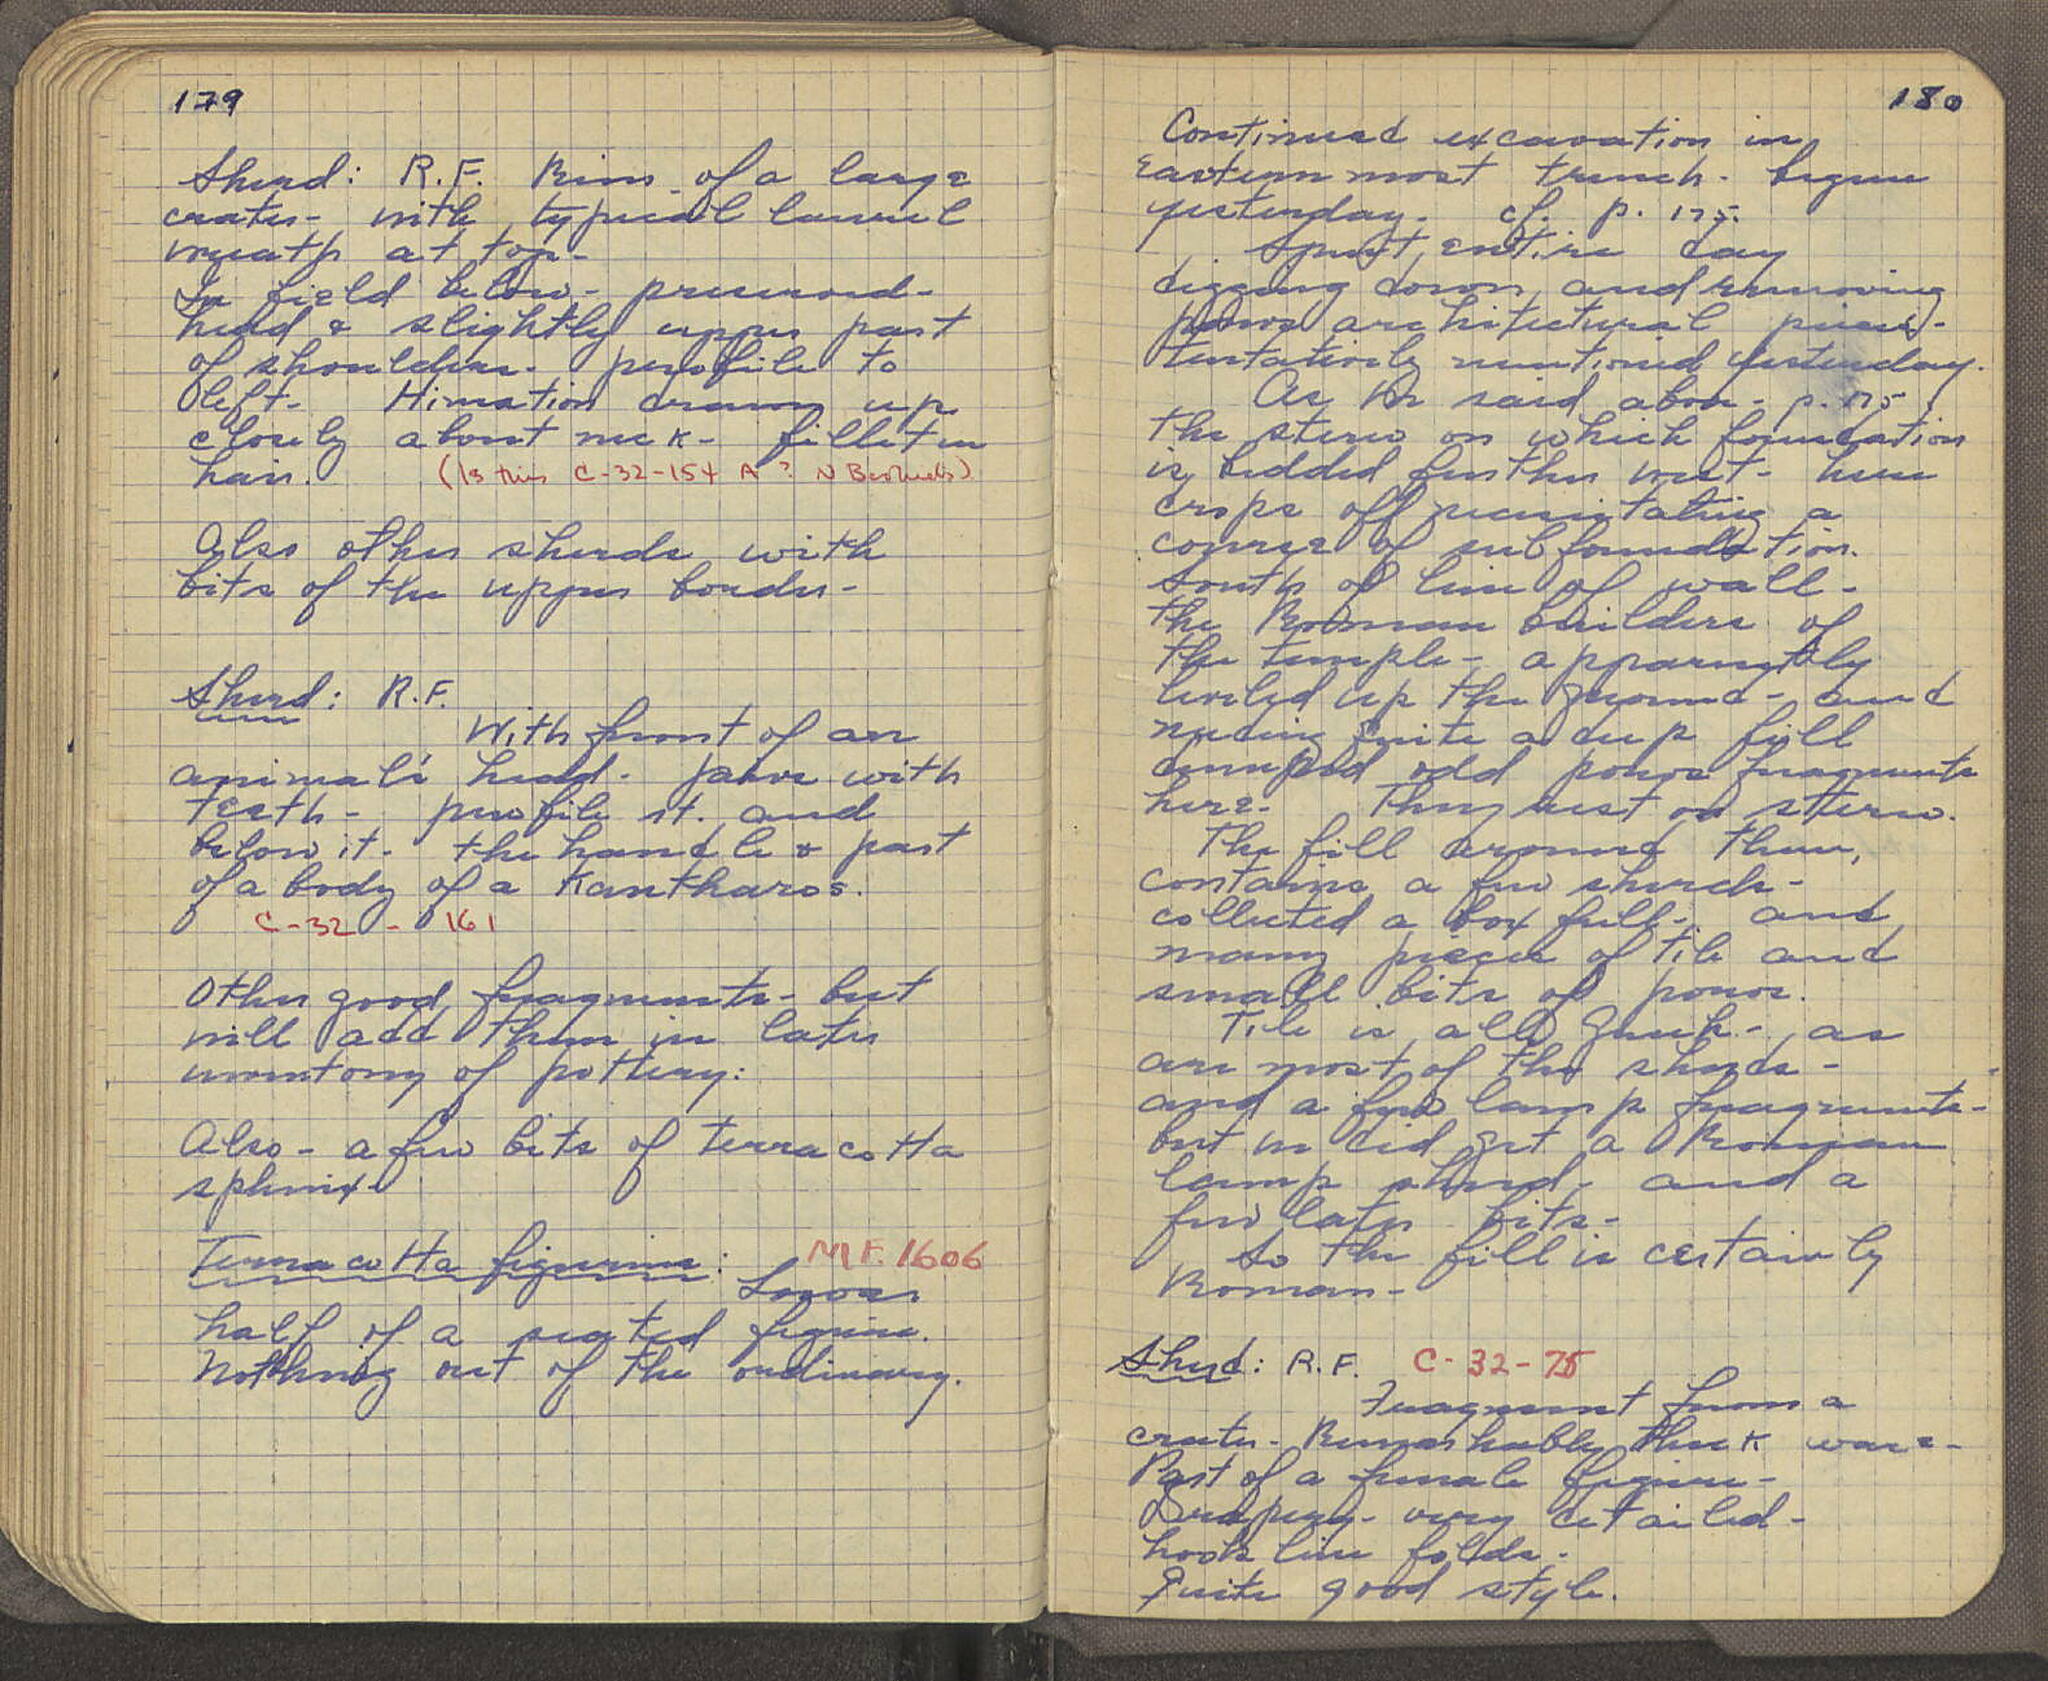 179
Sherd: R.F. Rim of a large
crater- with typical laurel
wreath at top-
In field below- preserved-
head & slightly upper part
of shoulder- profile to
left- Himation drawn up
closely about neck- fillet in
hair. (Is this C-32-154 A? N Bookidis)
Also other sherds with
bits of the upper border-
Sherd: R.F.
With front of an
animal's head- jaws with
teeth- profile rt. and
below it- the handle & part
of a body of a Kantharos.
C-32-161
Other good fragments- but
will add them in later
inventory of pottery:
Also- a few bits of terracotta
sphinx-
Terracotta figurine: MF. 1606
Lower
half of a seated figure.
Nothing out of the ordinary.
180
Continued excavation in
Easternmost trench- begun
yesterday. cf. p. 175.
Spent entire day
digging down and removing
poros architectural pieces-
tentatively mentioned yesterday.
As we said above- p. 175-
the stereo on which foundation
is bedded further west- here
drops off necessitating a
course of subfoundation.
South of line of wall-
the Roman builders of
the temple- apparently
leveled up the ground- and
needing quite a deep fill
dumped odd poros fragments
here- They rest on stereo.
The fill around them,
contains a few sherds-
collected a box full- and
many pieces of tile and
small bits of poros.
Tile is all Greek- as
are most of the sherds-
and a few lamp fragments-
but we did get a Roman
lamp sherd- and a
few later bits-
So the fill is certainly
Roman-
Sherd: R.F. C-32-75
Fragment from a
crater- Remarkably thick ware-
Part of a female figure-
Drapery- very detailed-
hook line folds-
Quite good style.